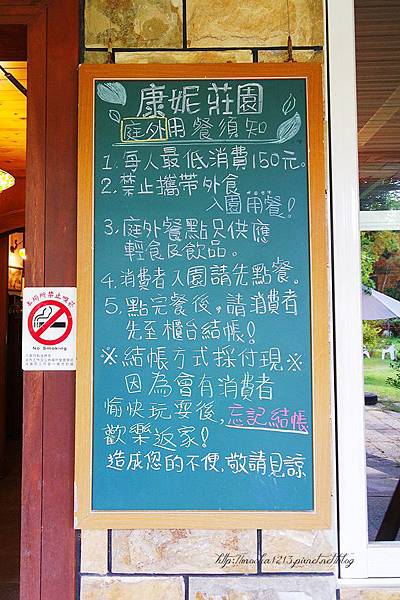 康妮莊園
庭外用餐須知
1. 每人最低消費150元。
2. 禁止攜帶外食
入園用餐!
3. 庭外餐點只供應
輕食及飲品。
4. 消費者入園請先點餐。
5. 點完餐後,請消費者
先至櫃台結帳!
※結帳方式採付現※
因為會有消費者
愉快玩耍後,忘記結帳
歡樂返家!
造成您的不便,敬請見諒
本場所禁止吸菸
No Smoking
http://mocha1213.pixnet.net/blog